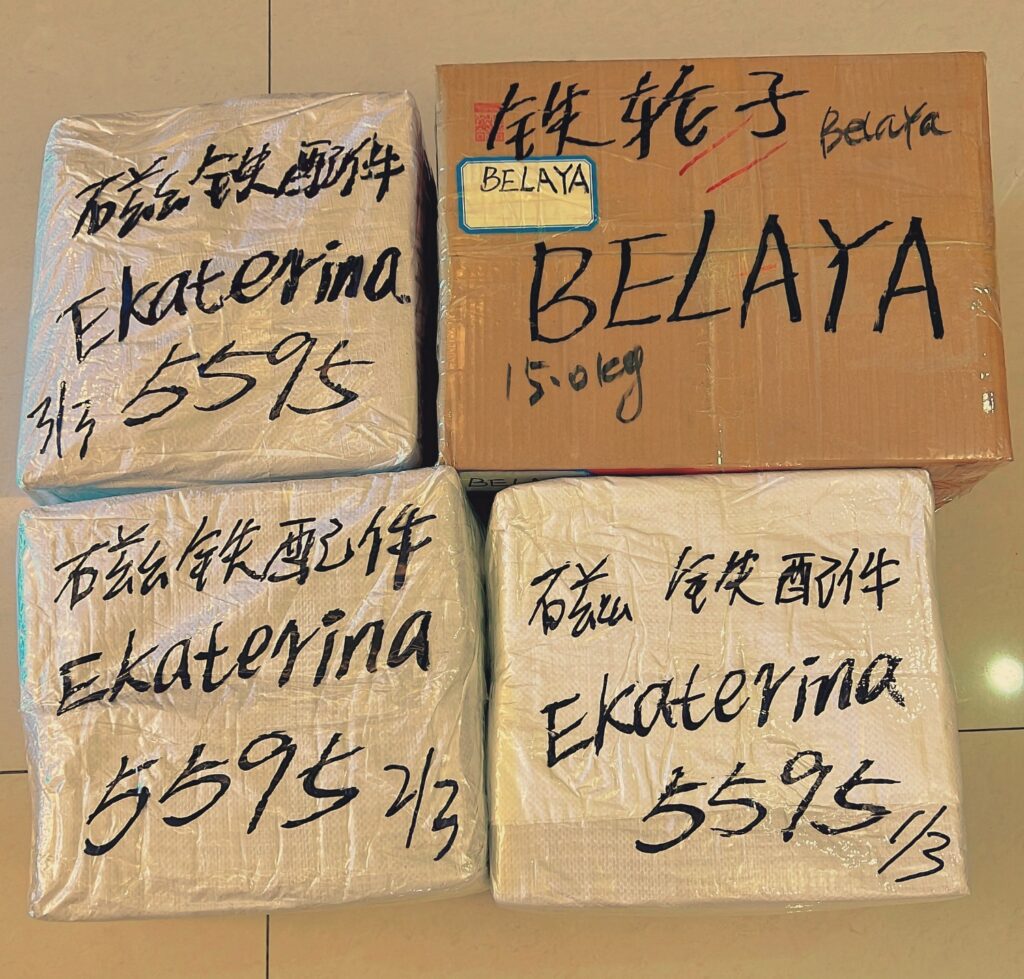 磁铁配件
Ekaterina
5595
3/3
铁轮子
Belaya
BELAYA
BELAYA
15.0kg
磁铁配件
Ekaterina
5595 2/3
磁铁配件
Ekaterina
5595 1/3